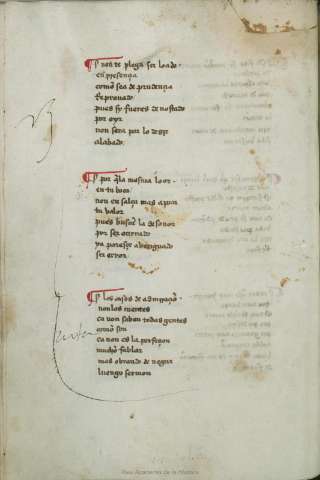 non te plega ser loado
en presençia
como sea de prudençia
reprouado
pues sy fueres denostado
por oyr
non sera por lo dezir
alabado
por la mesma loor
en tu boca
non ensalça mas apoca
tu valor
pues buscar la desonor
por ser onrrado
ya paresçe aberiguado
ser error
los casos de admiraçion
non los cuentes
ca non saben todas gentes
como son
ca non es la perfeçion
mucho fablar
mas obrando denegar
luengo sermon
Real Academia de la Historia